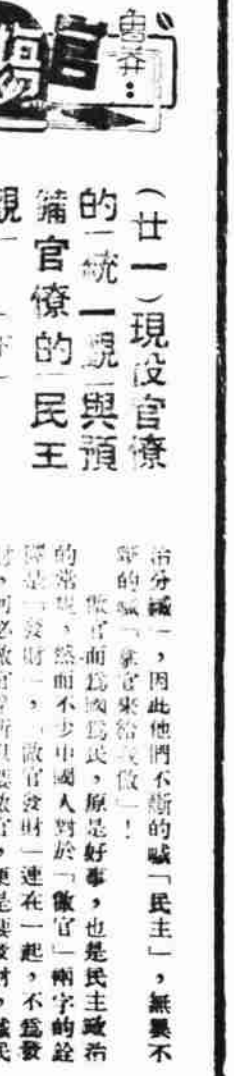 魯莽：
官場
（廿一）現役官僚
的「統一觀」與預
備官僚的「民主
觀」（下）
治分贓」，因此他們不斷的喊「民主」，無異不
斷的喊「拿官來給我做」！
做官而爲國爲民，原是好事，也是民主政治
的常規，然而不少中國人對於「做官」兩字的詮
釋是「發財」，「做官發財」連在一起，不爲發
財，何必做官